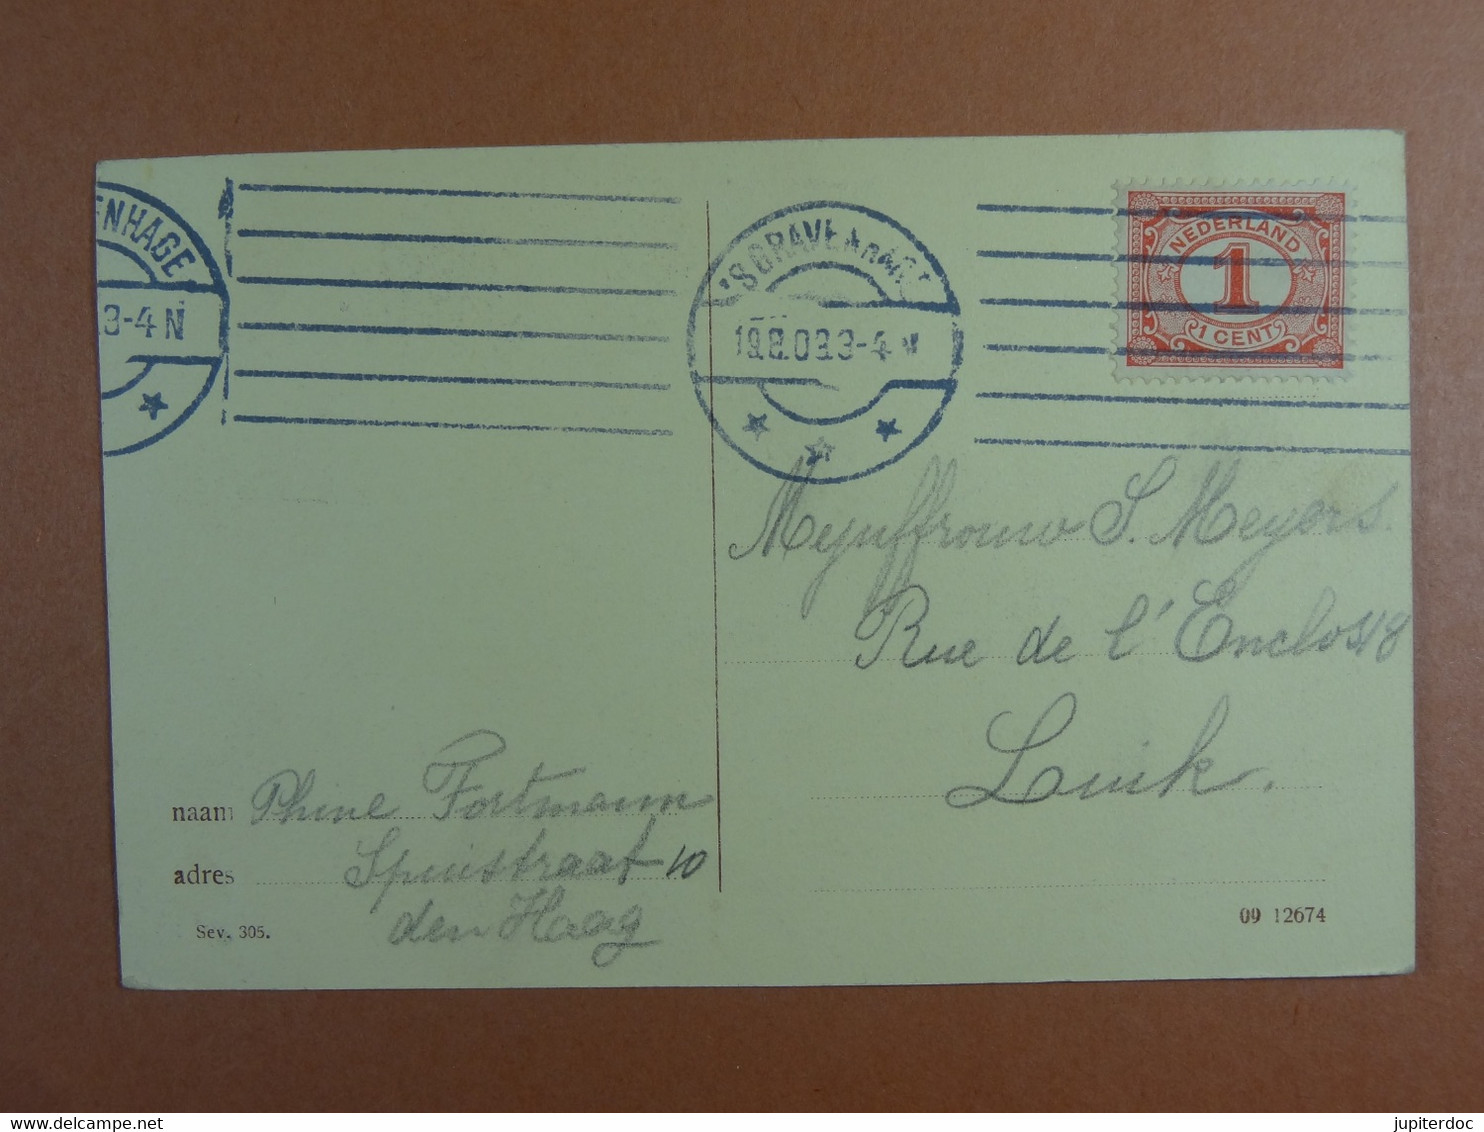 ENHAGE
3-4 N
'S GRAVENHAGE
19.8.09.3-4 N
NEDERLAND
1
1 CENT
Mejuffrouw S. Meyers.
Rue de l'Enclos 18
Luik.
naam Phine Fortmann
adres Spuistraat 10
den Haag
Sev. 305.
09 12674
delcampe.net
jupiterdoc